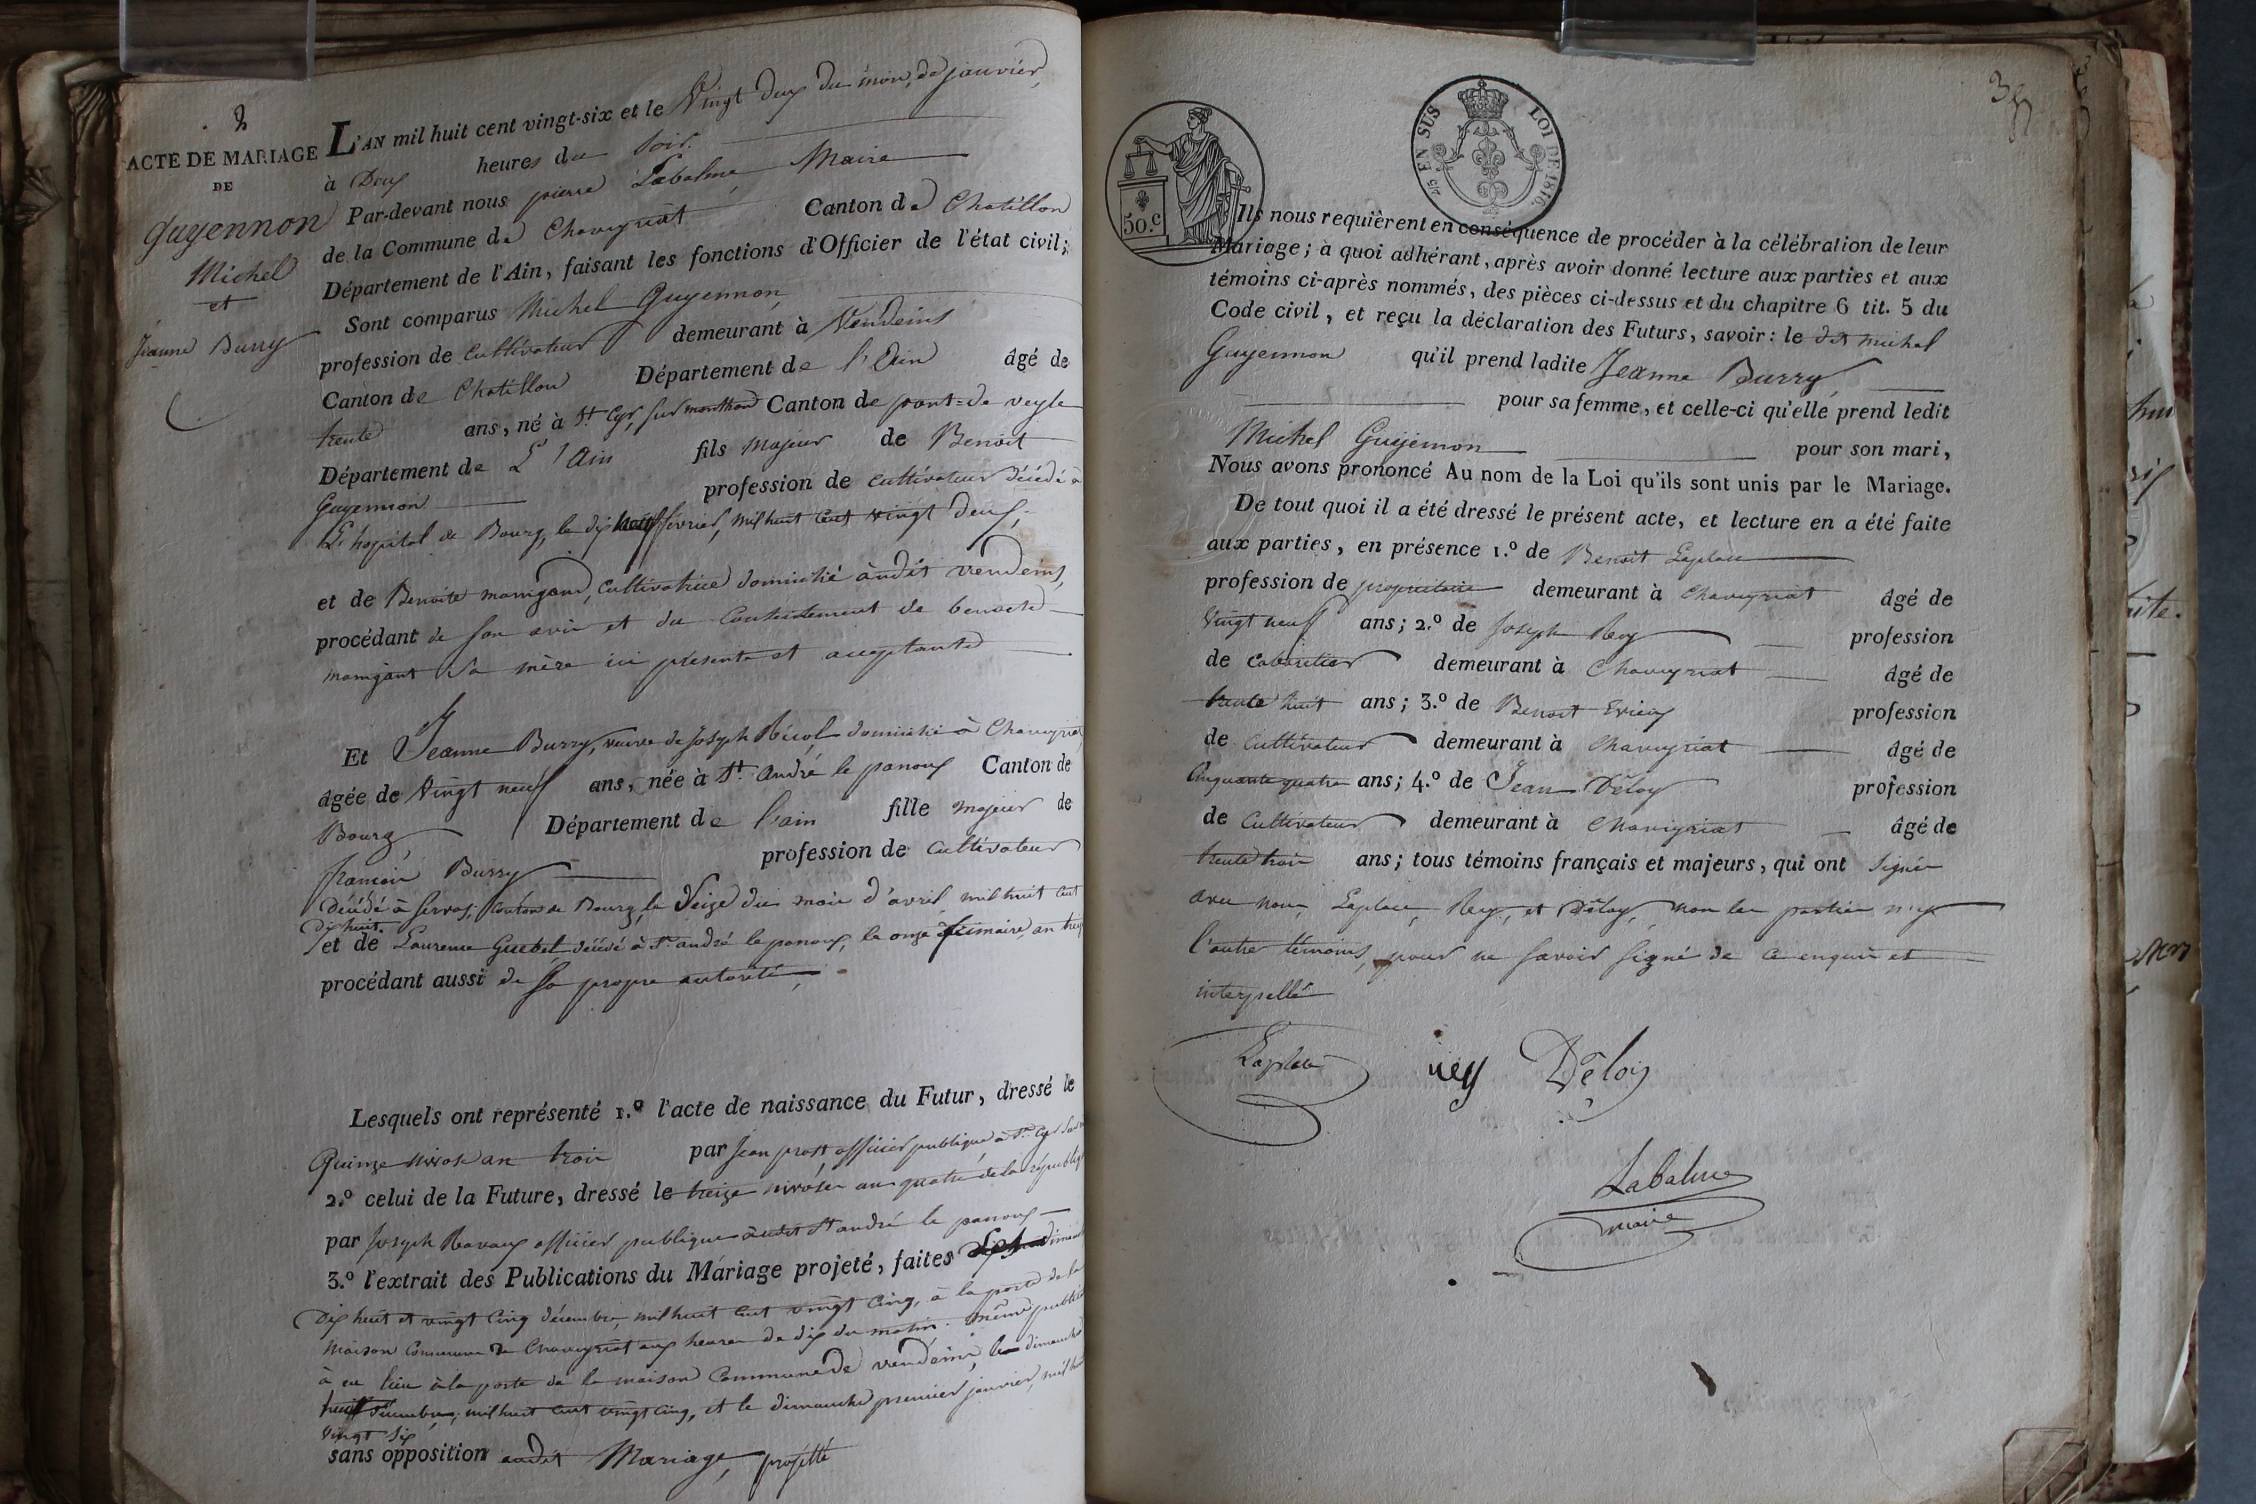 2
ACTE DE MARIAGE
DE
Guyennon
Michel
et
Jeanne Burry
L'AN mil huit cent vingt-six et le Vingt deux du mois de janvier,
à Deux heures du Soir.
Par-devant nous pierre Labalme, Maire
de la Commune de Chaveyriat Canton de Chatillon
Département de l'Ain, faisant les fonctions d'Officier de l'état civil;
Sont comparus Michel Guyennon,
profession de Cultivateur demeurant à Vendeins
Canton de Chatillon Département de l'Ain âgé de
trente ans, né à St. Cyr, sur menthon Canton de pont=de veyle
Département de L'Ain fils Majeur de Benoit
Guyennon profession de cultivateur décédé à
L'hopital de Bourg, le dix février, mil huit cent vingt deux,
et de Benoite cultivatrice domicilié audit vendeins,
procédant de son avis et du Consentement de benoite
sa mère ici présente et acceptante
Et Jeanne Burry, veuve de Joseph domicilié à Chaveyriat
âgée de Vingt neuf ans, née à St. andré le panoux Canton de
Bourg, Département de l'ain fille majeur de
francois Burry profession de cultivateur
décédé à servas, Canton de Bourg, le Seize du mois d'avril mil huit cent
dix huit.
et de Laurence décédé à St. andré le panoux, le onze frimaire, an
procédant aussi de sa propre autorité,
Lesquels ont représenté 1.º l'acte de naissance du Futur, dressé le
Quinze nivose an trois par Jean prost officier publique à St. Cyr
2.º celui de la Future, dressé le treize nivose an quatre de la républiq
par Joseph Ravaux officier publique audit St andré le panoux
3.º l'extrait des Publications du Mariage projeté, faites
Dix huit et vingt cinq décembre, mil huit cent vingt cinq, à la porte de la
maison Commune de Chaveyriat aux heures de dix du matin. même
à eu lieu à la porte de la maison Commune de vendeins, le dimanche
mil huit cent vingt cinq, et le dimanche premier janvier, mil
vingt six
sans opposition audit Mariage, projetté
50.C
EN SUS
LOI DE 1816.
Ils nous requièrent en conséquence de procéder à la célébration de leur
Mariage; à quoi adhérant, après avoir donné lecture aux parties et aux
témoins ci-après nommés, des pièces ci-dessus et du chapitre 6 tit. 5 du
Code civil, et reçu la déclaration des Futurs, savoir: le dit michel
Guyennon qu'il prend ladite Jeanne Burry,
pour sa femme, et celle-ci qu'elle prend ledit
Michel Guyennon pour son mari,
Nous avons prononcé Au nom de la Loi qu'ils sont unis par le Mariage.
De tout quoi il a été dressé le présent acte, et lecture en a été faite
aux parties, en présence 1.º de Benoit Laplace
profession de propriétaire demeurant à Chaveyriat âgé de
Vingt neuf ans; 2.º de Joseph Rey profession
de Cabaretier demeurant à Chaveyriat âgé de
trente huit ans; 3.º de Benoit profession
de Cultivateur demeurant à Chaveyriat âgé de
Cinquante quatre ans; 4.º de Jean Déloy profession
de Cultivateur demeurant à Chaveyriat âgé de
trente trois ans; tous témoins français et majeurs, qui ont signé
avec nous, Laplace, Rey, et Déloy, non les parties n'y
l'autre témoins, pour ne savoir signé de ce enquis et
interpellé
Laplace
rey
Déloy
Labalme
maire